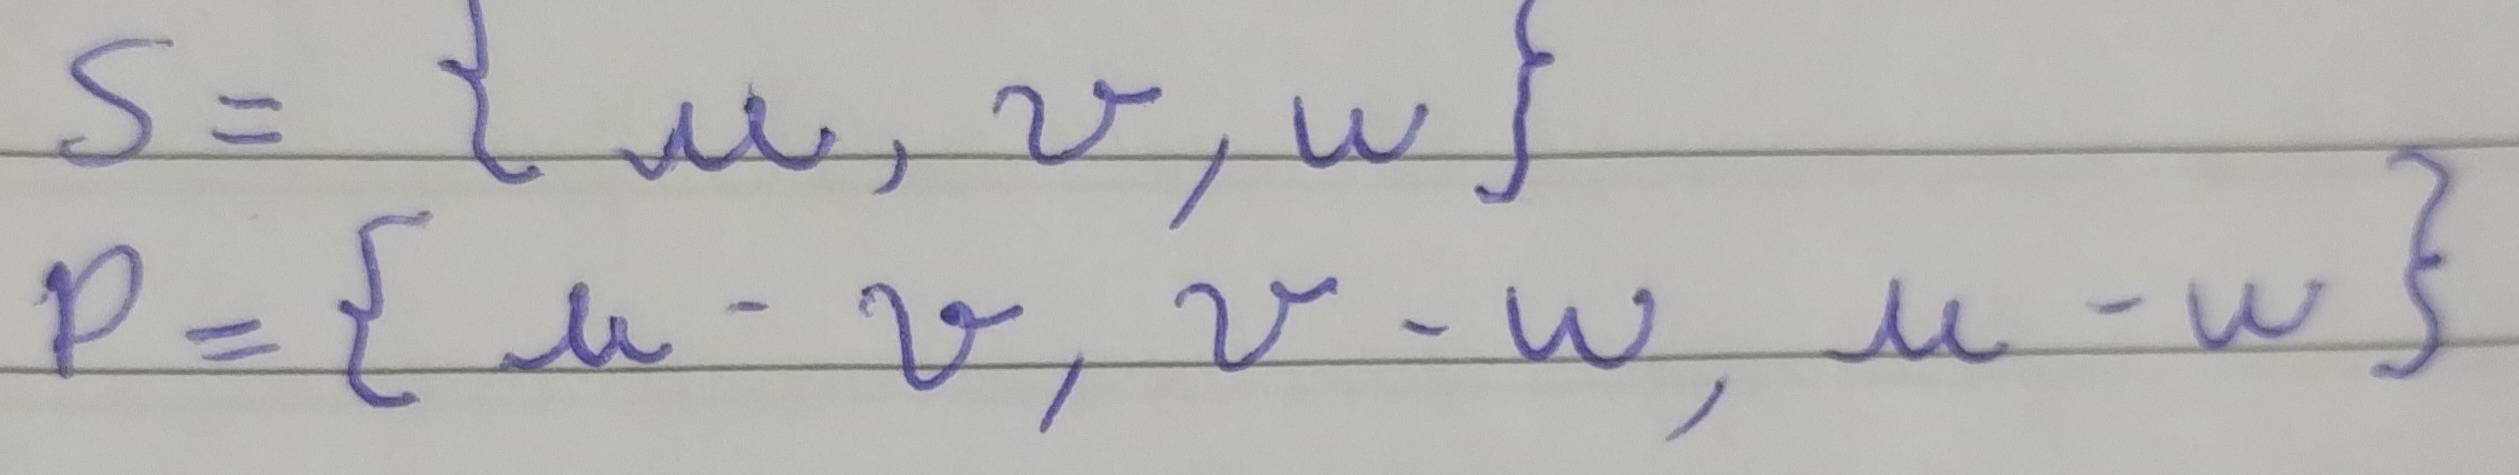 S = { u, v, w }
P = { u - v, v - w, u - w }